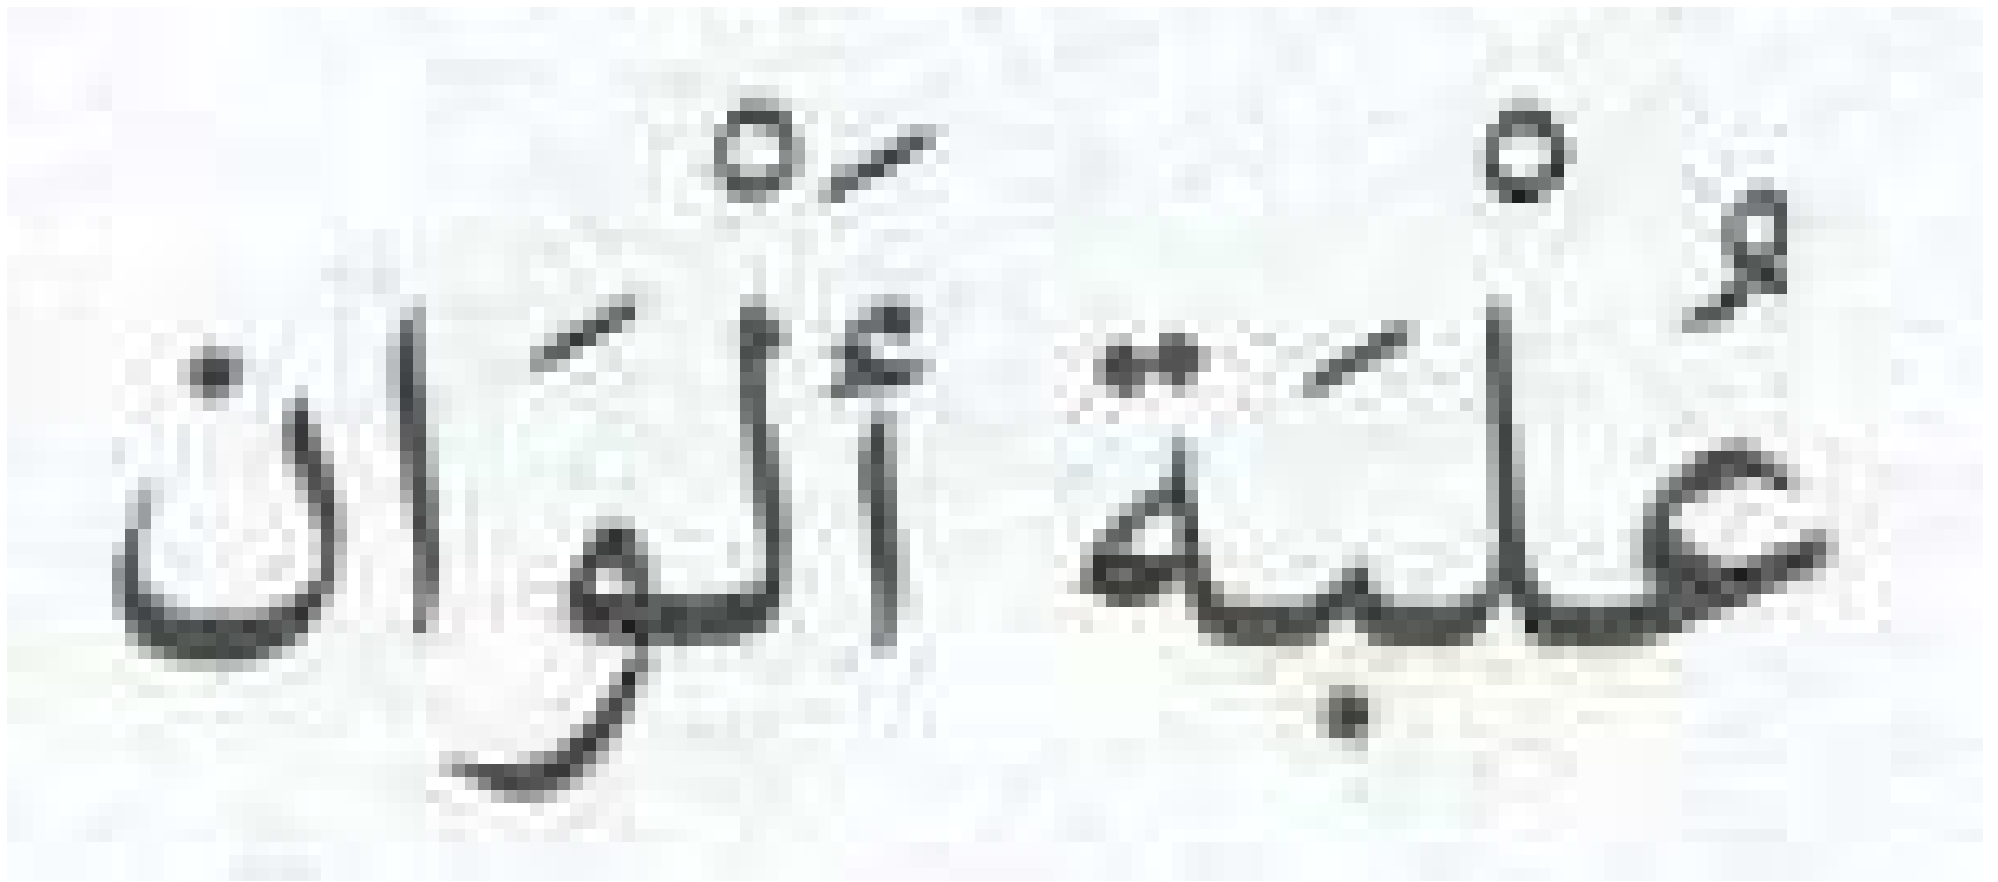 عُلْبَة أَلْوَان